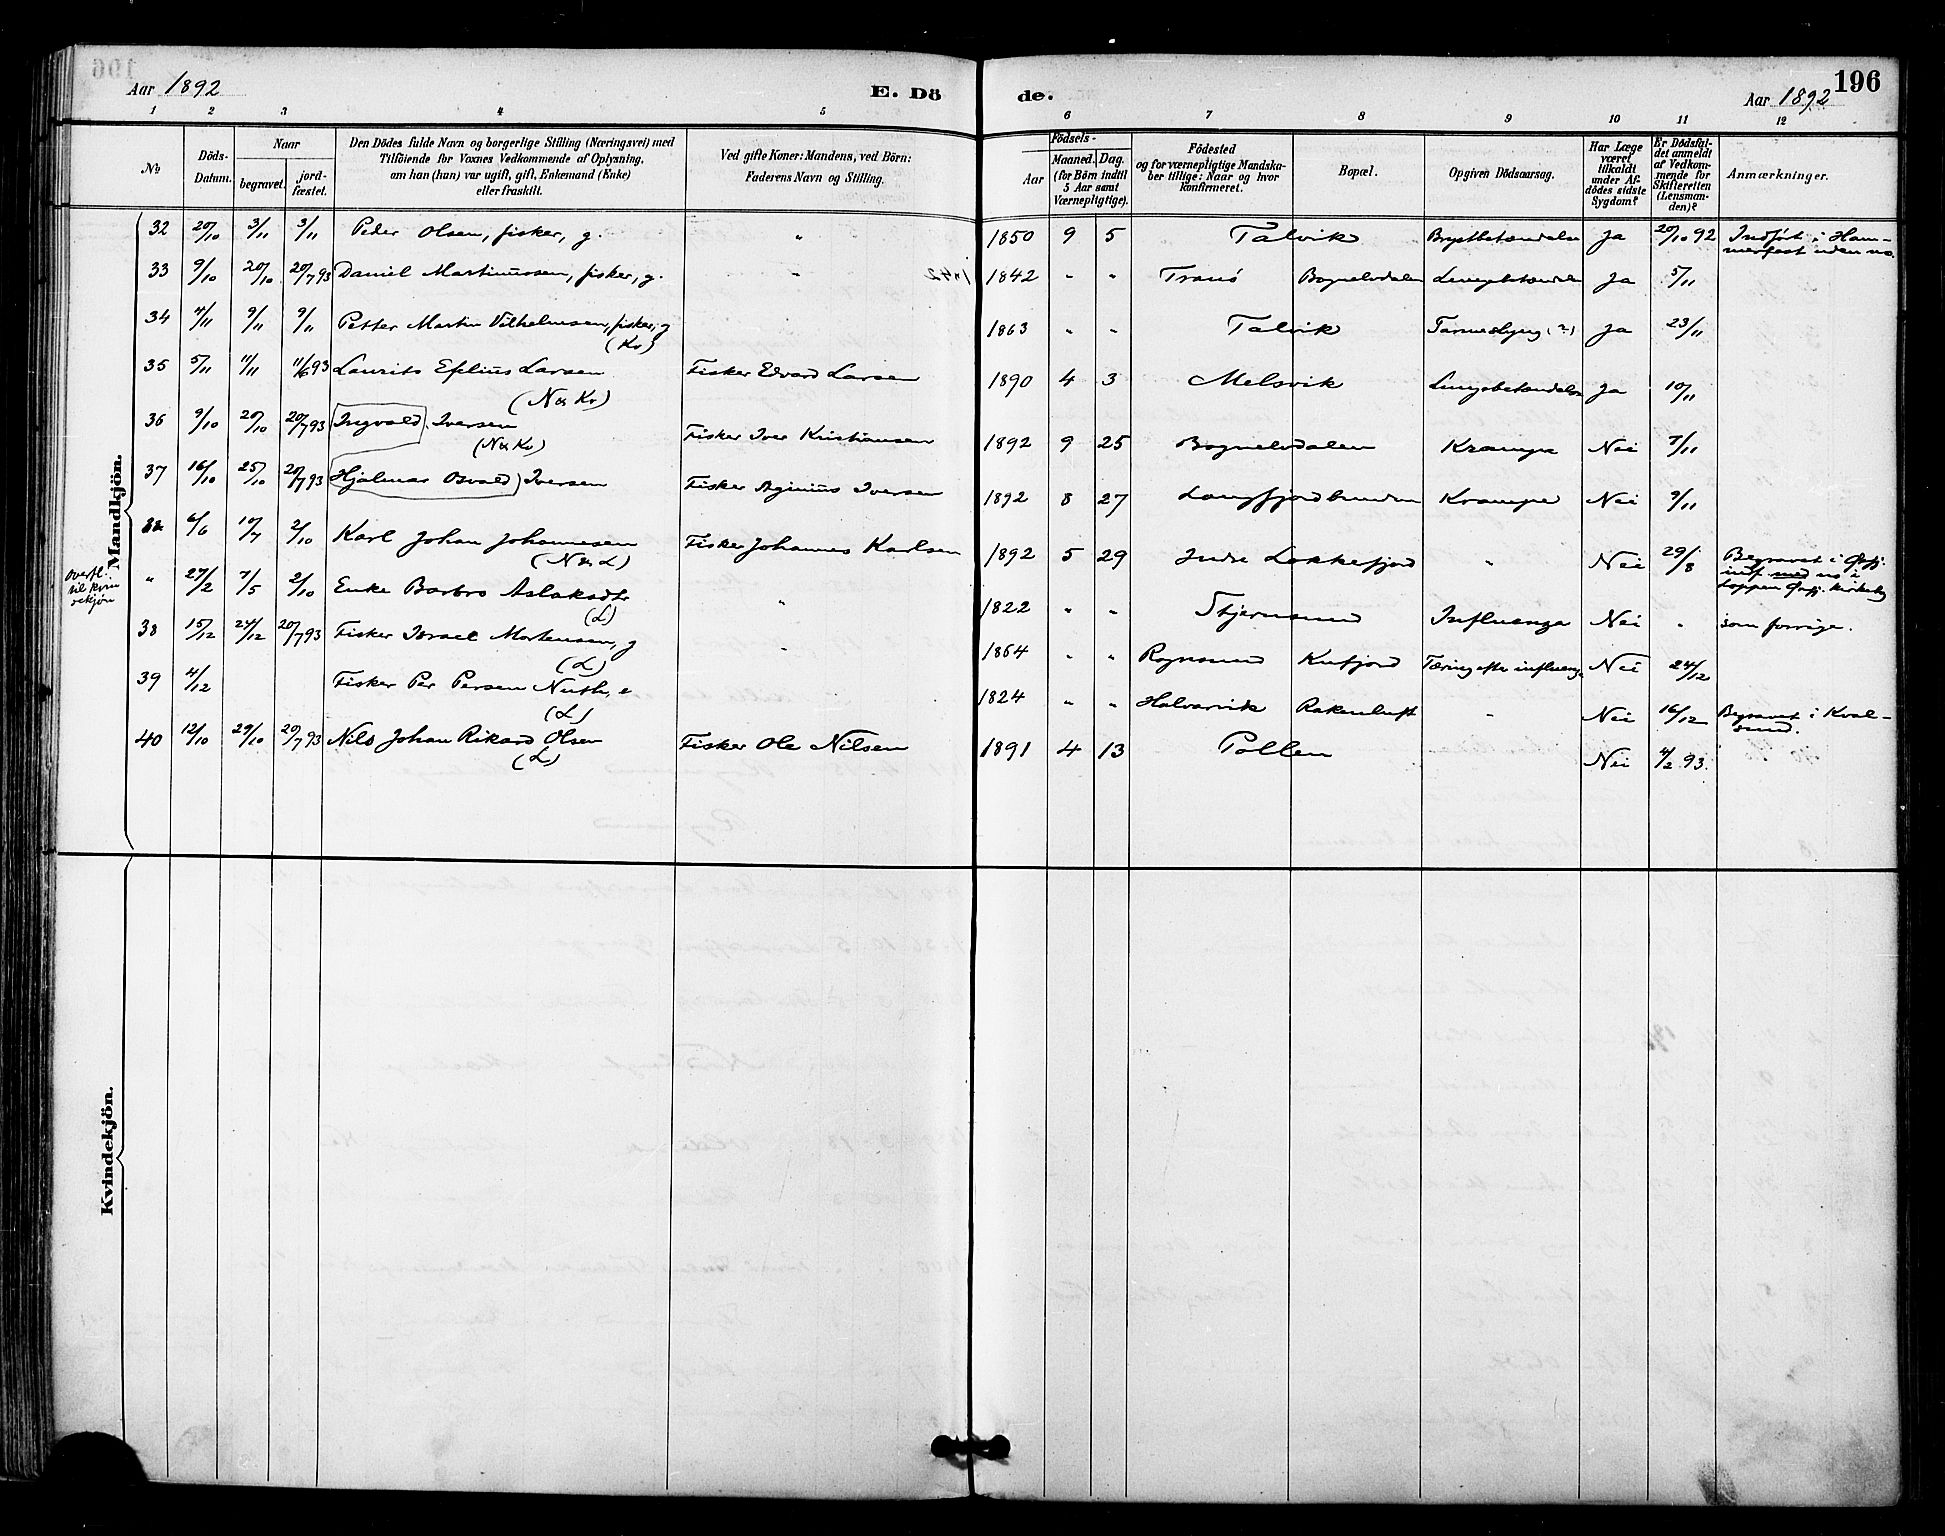 196
Aar 1892
E. Dö
de.
Aar 1892
1 2 3 4 5
6 7 8 9 10 11 12
No
Döds-Datum.
Naar
begravet.
jord-fæstet.
Den Dödes fulde Navn og borgerlige Stilling (Næringsvei) med
Tilföiende for Voxnes Vedkommende af Oplysning,
om han (hun) var ugift, gift, Enkemand (Enke)
eller fraskilt.
Ved gifte Koner: Mandens, ved Börn:
Faderens Navn og Stilling.
Födsels-
Aar
Maaned. Dag.
(for Börn indtil
5 Aar samt
Værnepligtige).
Födested
og for værnepligtige Mandska-
ber tillige: Naar og hvor
konfirmeret.
Bopæl.
Opgiven Dödsaarsag.
Har Læge
været
tilkaldt
under Af-
dödes sidste
Sygdom?
Er Dödsfal-
det anmeldt
af Vedkom-
mende for
Skifteretten
(Lensman-
den)?
Anmærkninger.
Mandkjön.
32 20/10 3/11 3/11 Peder Olsen, fisker, g. " 1850 9 5 Talvik Brystbetændelse Ja 20/10 92 Indført i Ham-
merfest uden no.
33 9/10 20/10 20/7 93 Daniel Martinussen, fisker, g. " 1842 " " Tranö Bognelvdalen Lungebetændelse Ja 5/11
34 4/11 9/11 9/11 Petter Martin Vilhelmsen, fisker, g
(Kv) 1863 " " Talvik Tarmeslyng (?) Ja 23/11
35 5/11 11/11 11/6 93 Laurits Efelius Larsen
(N & Kv) Fisker Edvard Larsen 1890 4 3 Melsvik Lungebetændelse Ja 10/11
36 9/10 20/10 20/7 93 Ingvald Iversen
(N & Kv) Fisker Iver Kristiansen 1892 9 25 Bognelvdalen Krampe Nei 7/11
37 16/10 25/10 20/7 93 Hjalmar Osvald Iversen Fisker Aginius Iversen 1892 8 27 Langfjordbunden Krampe Nei 9/11
6/6 10/7 2/10 Karl Johan Johannesen
(N & L) Fisker Johannes Karlsen 1892 5 29 Indre Lokkefjord " Nei 29/8 Begravet i Øxfj.
indf. med no i
Loppen Øxfj. kirkebog
overf.
til kvin
dekjøn
" 27/2 7/5 2/10 Enke Barbro Aslaksdtr
(L) " 1822 " " Stjernsund Influenza Nei " som forrige.
38 15/12 24/12 20/7 93 Fisker Israel Mortensen, g
(L) " 1864 " " Rognsund Kufjord Tæring efter influenza Nei 24/12
39 4/12 Fisker Per Persen Nuth, e
(L) 1824 " " Halvarvik Rakenluft " Nei 16/12 Begravet i Kval-
sund.
40 12/10 29/10 20/7 93 Nils Johan Rikard Olsen
(L) Fisker Ole Nilsen 1891 4 13 Pollen Nei 4/2 93.
Kvindekjön.